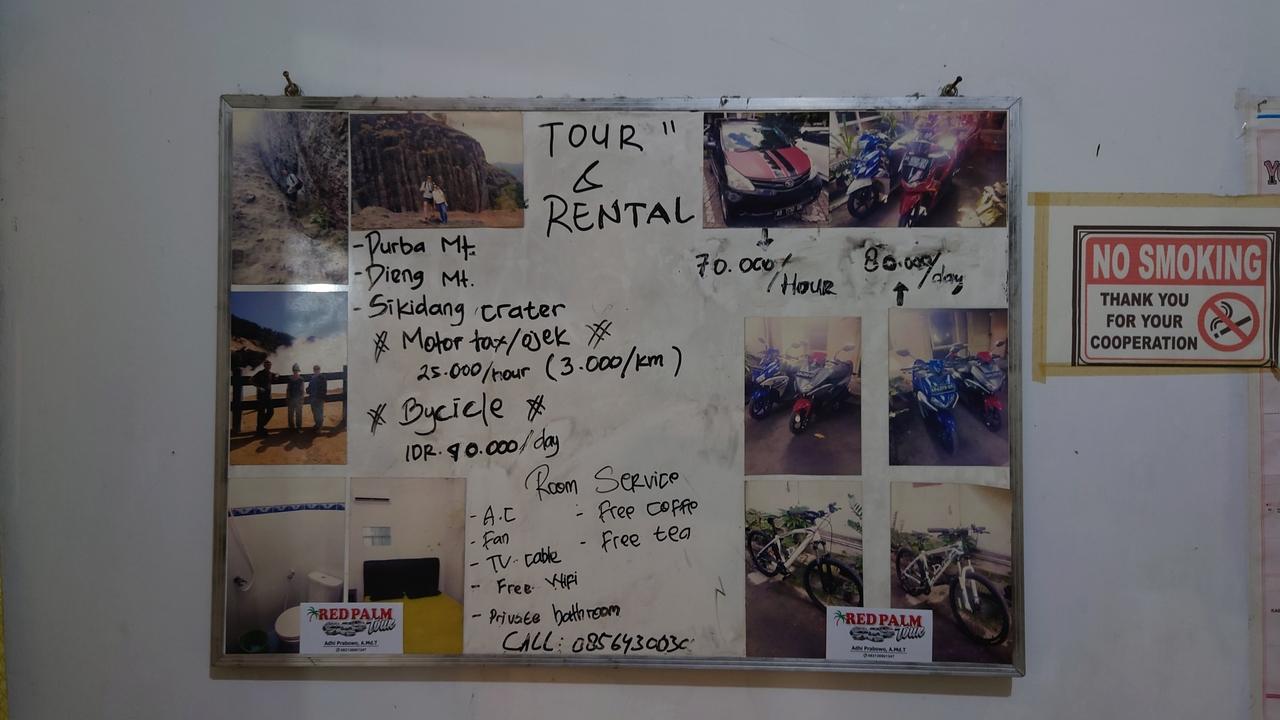 TOUR "
&
RENTAL
- Purba Mt.
- Dieng Mt.
- Sikidang crater
※ Motor tax/ojek ※
25.000/hour (3.000/km)
※ Bycicle ※
IDR. 90.000/day
70.000/Hour
80.000/day
Room Service
- A.C
- Fan
- TV cable
- Free Wifi
- Private bathroom
- Free Coffe
- Free tea
CALL: 0856430030
RED PALM
Tour
Adhi Prabowo, A.Md.T
RED PALM
Tour
Adhi Prabowo, A.Md.T
NO SMOKING
THANK YOU
FOR YOUR
COOPERATION